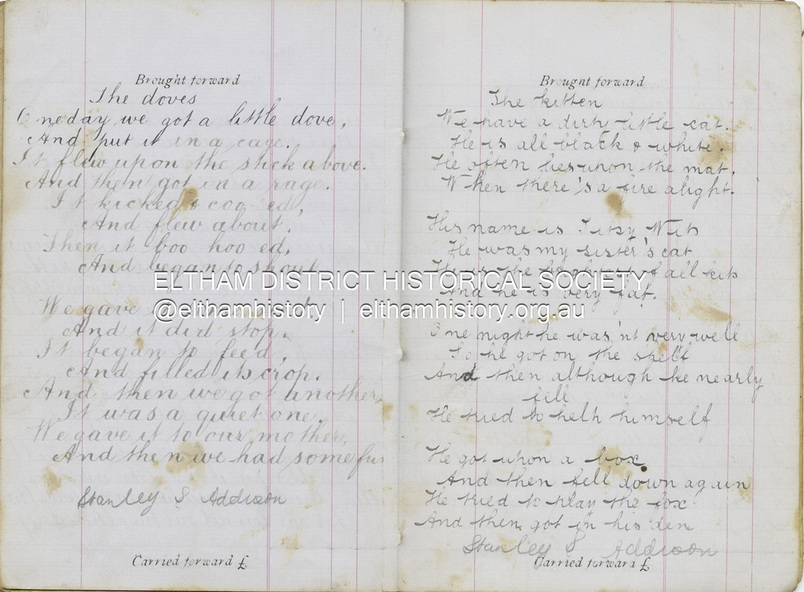 Brought forward
The doves
One day we got a little dove,
And put it in a cage.
It flew upon the stick above.
And then got in a rage.
It kicked & coo ed,
And flew about.
Then it boo hoo ed,
And began to shout
We gave it
And it did stop.
It began to feed,
And filled its crop.
And then we got another,
It was a quiet one,
We gave it to our mother,
And then we had some fun
Stanley S Addison
Carried forward £
Brought forward
The kitten
We have a dirty little cat.
He is all black & white.
He often lies upon the mat.
When there's a fire alight.
His name is Nits
He was my sister's cat
of all kits
And he is very fat.
One night he was'nt very well
So he got on the shelf
And then although he nearly
fell
He tried to help himself
He got upon a box
And then fell down again
He tried to play the fox
And then got in his den
Stanley S Addison
Carried forward £
ELTHAM DISTRICT HISTORICAL SOCIETY
@elthamhistory | elthamhistory.org.au